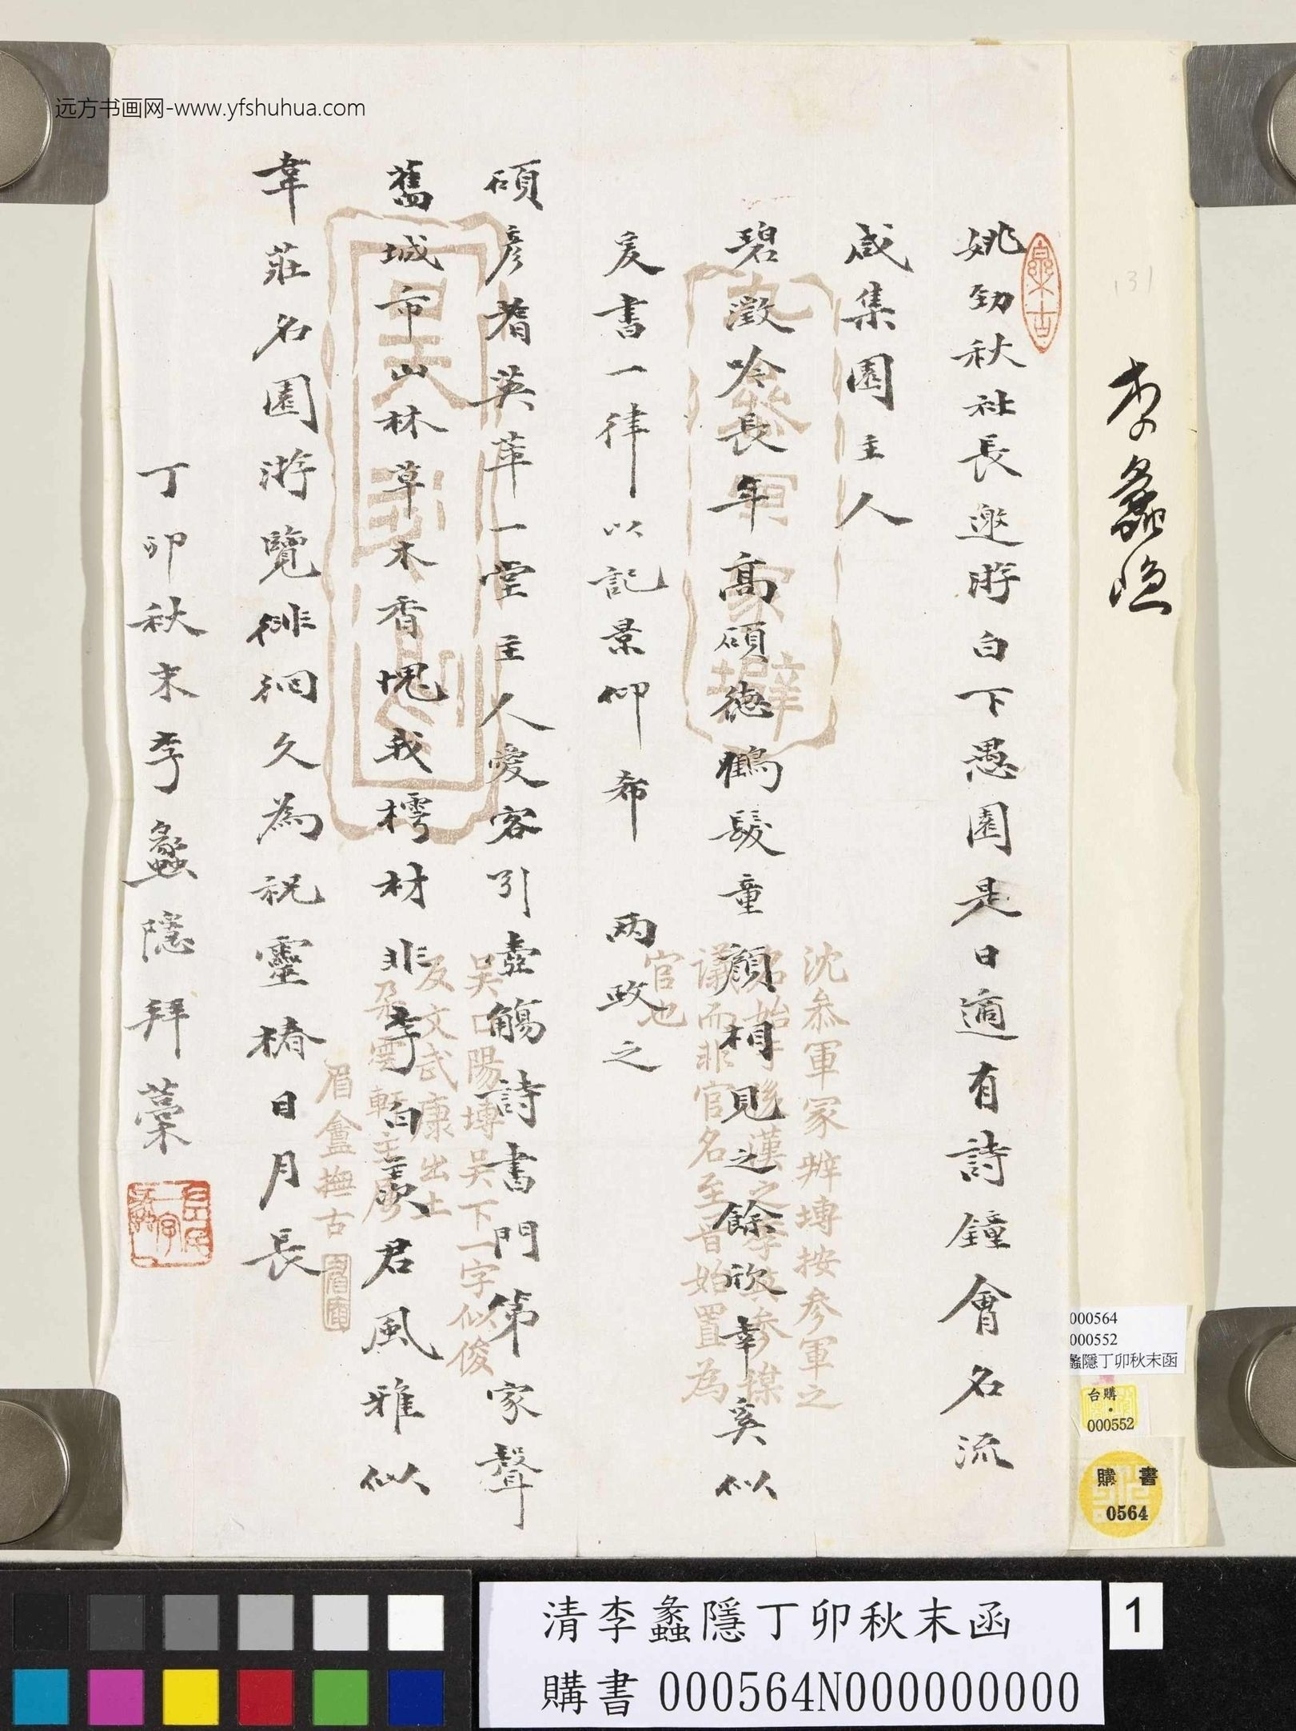 远方书画网-www.yfshuhua.com
李蠡隱
姚劲秋社長邀游白下愚園是日適有詩鐘會名流
咸集園主人
碧澂吟長年高碩德鶴髮童顏相見之餘欣幸奚似
爰書一律以記景仰希 兩政之
碩彥耆英萃一堂主人愛客引壺觴詩書門第家聲
舊城市山林草木香愧我樗材非李白羨君風雅似
韋莊名園游覽徘徊久為祝靈椿日月長
丁卯秋末李蠡隱拜藁
沈叅軍冢辨塼按參軍之
議而非官名至晉始置為
官也
吳下一字似俊
及文武康出土
眉盦撫古
131
000564
000552
蠡隱丁卯秋末函
購台
000552
購書
0564
清李蠡隱丁卯秋末函
購書 000564N000000000
1